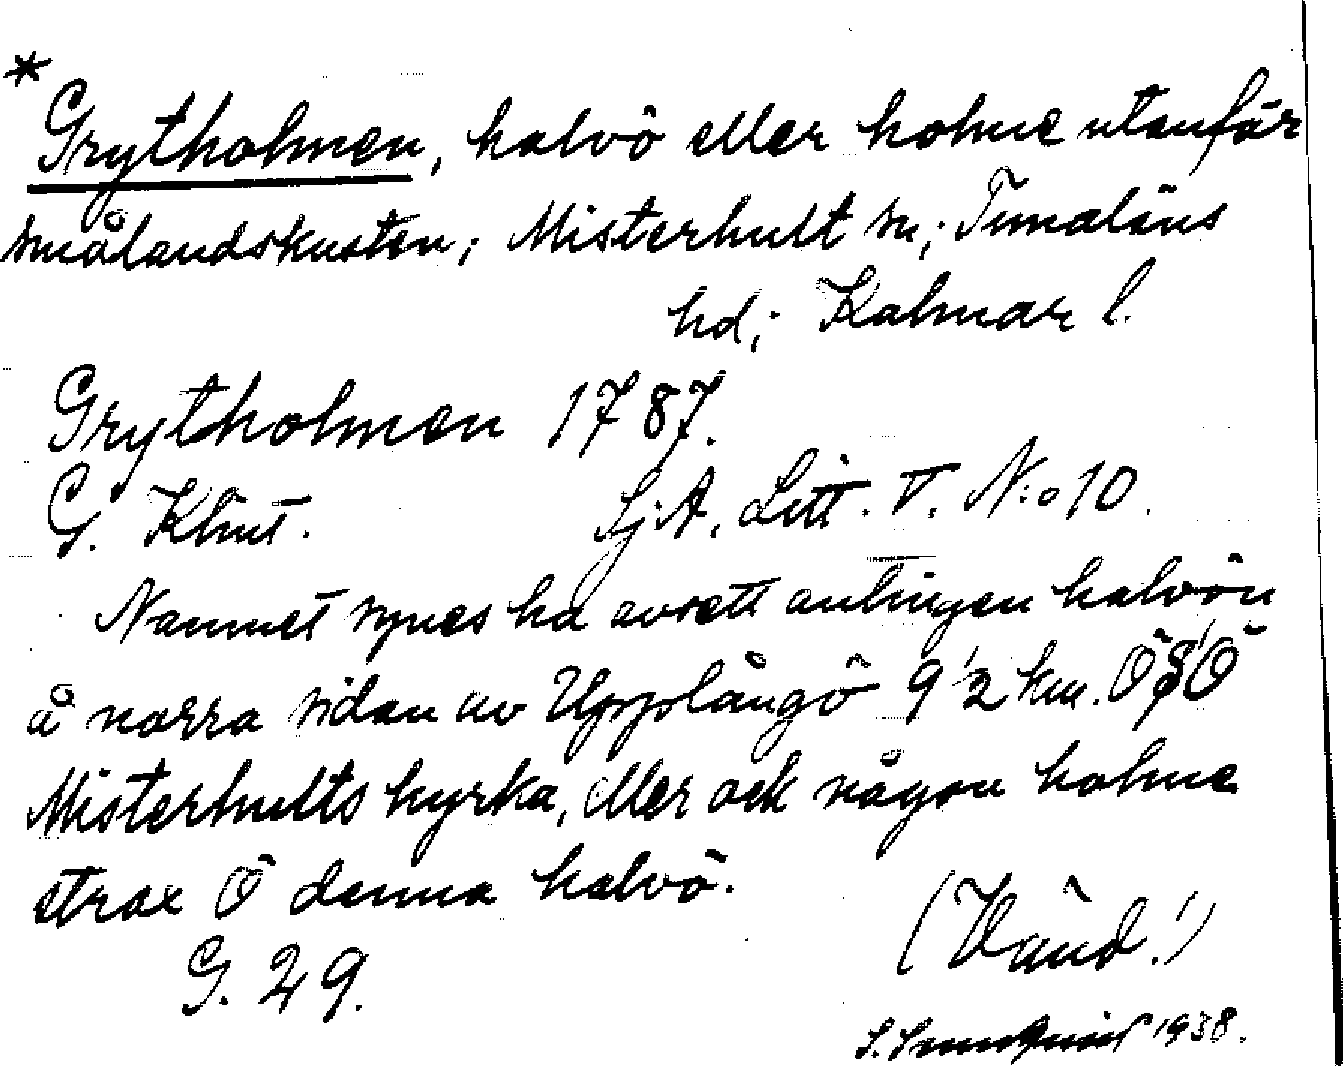 * Grytholmen, halvö eller holme utanför
smålandskusten; Misterhult sn; Tunaläns
hd; Kalmar l.
Grytholmen 1787.
G. Klint. SjA. Litt. V. N:o 10.
Namnet synes ha avsett antingen halvön
å norra sidan av Upplångö 9 1/2 km. ÖSÖ
Misterhults kyrka, eller ock någon holme
strax Ö denna halvö.
G. 29. (Vänd!)
1938.